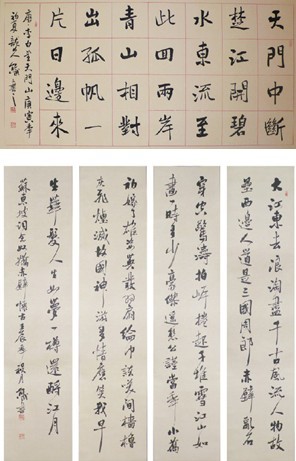 天門中斷
楚江開碧
水東流至
此回兩岸
青山相對
出孤帆一
片日邊來
唐李白望天門山庚寅年
初夏
大江東去浪淘盡千古風流人物故
壘西邊人道是三國周郎赤壁亂石
穿空驚濤拍岸捲起千堆雪江山如
畫一時多少豪傑遙想公瑾當年小喬
初嫁了雄姿英發羽扇綸巾談笑間檣櫓
灰飛煙滅故國神游多情應笑我早
生華髮人生如夢一樽還酹江月
蘇東坡詞念奴嬌赤壁懷古